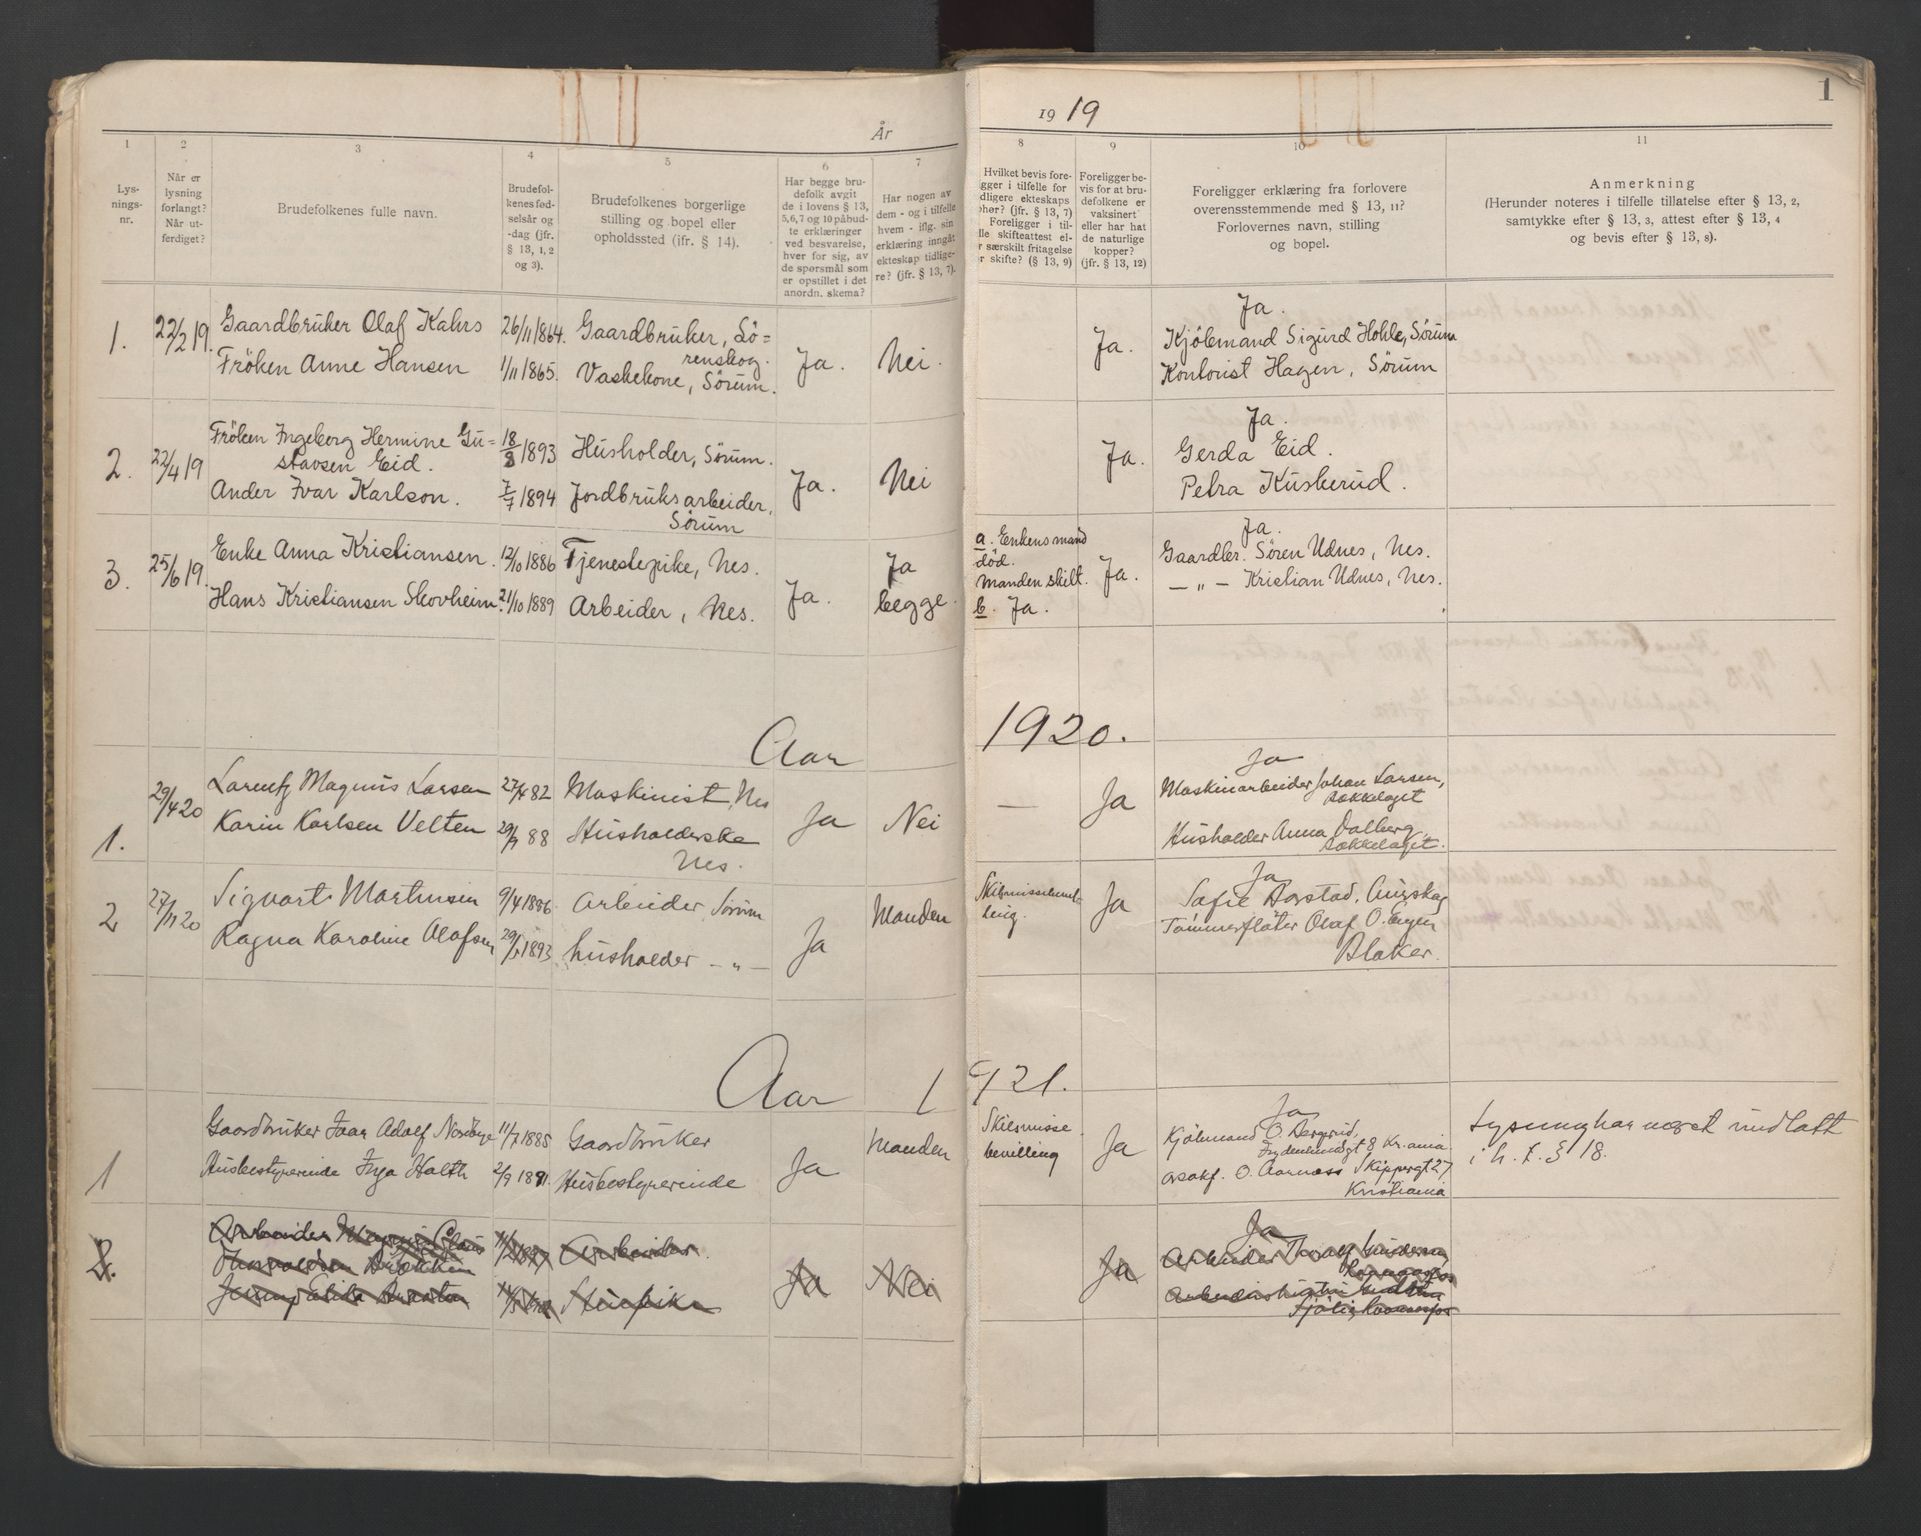 År 19 19
1
1
Lys-
nings-
nr.
2
Når er
lysning
forlangt?
Når ut-
ferdiget?
3
Brudefolkenes fulle navn.
4
Brudefol-
kenes fød-
selsår og
-dag (jfr.
§ 13, 1, 2
og 3).
5
Brudefolkenes borgerlige
stilling og bopel eller
opholdssted (jfr. § 14).
6
Har begge bru-
defolk avgit
de i lovens § 13,
5, 6, 7 og 10 påbud-
te erklæringer
ved besvarelse,
hver for sig, av
de spørsmål som
er opstillet i det
anordn. skema?
7
Har nogen av
dem - og i tilfelle
hvem - iflg. sin
erklæring inngått
ekteskap tidlige-
re? (jfr. § 13, 7).
8
Hvilket bevis fore-
gger i tilfelle for
dligere ekteskaps
phør? (jfr. § 13, 7)
Foreligger i til-
lle skifteattest el-
r særskilt fritagelse
r skifte? (§ 13, 9)
9
Foreligger be-
vis for at bru-
defolkene er
vaksinert
eller har hat
de naturlige
kopper?
(jfr. § 13, 12)
10
Foreligger erklæring fra forlovere
overensstemmende med § 13, 11?
Forlovernes navn, stilling
og bopel.
11
Anmerkning
(Herunder noteres i tilfelle tillatelse efter § 13, 2,
samtykke efter § 13, 3, attest efter § 13, 4
og bevis efter § 13, 8).
1.
22/2 19.
Gaardbruker Olaf Kahrs
Fröken Anne Hansen
26/11 1864.
1/11 1865.
Gaardbruker, Sö=
renskog.
Vaskekone, Sørum.
Ja.
Nei.
Ja.
Ja.
Kjöbmand Sigurd Hohle, Sørum
Kontorist Hagen, Sørum
2.
22/4 19
Fröken Ingeborg Hermine Gu-
stavsen Eid.
Ander Ivar Karlson.
18/8 1893
7/7 1894
Husholder, Sørum.
Jordbruksarbeider,
Sørum
Ja.
Nei
Ja.
Ja.
Gerda Eid.
Petra Kuskerud.
3.
25/6 19.
Enke Anna Kristiansen.
Hans Kristiansen Skovheim.
12/10 1886
21/10 1889
Tjenestepike, Nes.
Arbeider, Nes.
Ja.
Ja
begge.
a. Enkens mand
død.
Manden skilt.
b. Ja.
Ja.
Ja.
Gaardbr. Søren Udnes, Nes.
— " — Kristian Udnes, Nes.
Aar 1920.
1.
29/4 20
Larentz Magnus Larsen
Karin Karlsen Velten
27/4 82
29/9 88
Maskinist, Nes
Husholderske
Nes.
Ja
Nei
—
Ja
Ja
Maskinarbeider Johan Larsen,
Bækkelaget
Husholder Anna Dalberg,
Bækkelaget.
2
27/11 20
Sigvart Martinsen
Ragna Karoline Olafsen
9/4 1886
1893
Arbeider Sørum
husholder — " —
Ja
Manden
Ja
Ja
Safie Horstad, Aurskog
Tømmerfløter Olaf O.
Blaker.
Aar 1921.
1
Gaardbruker Ivar Adolf
Husbestyrerinde Inga Holth
11/7 1885
2/9 1891.
Gaardbruker
Husbestyrerinde
Ja
Manden
Skilsmisse
bevilling
Ja
Ja
Kjöbmand O. Bergerud,
Frydenlundgt 8 Kr.ania
O. Aarnæss Skippergt 27,
Kristiania
Lysning har været undlatt
i h. t. § 18.
2.
Arbeider
Arbeider
Ja
Nei
Ja
Ja
Arbeider